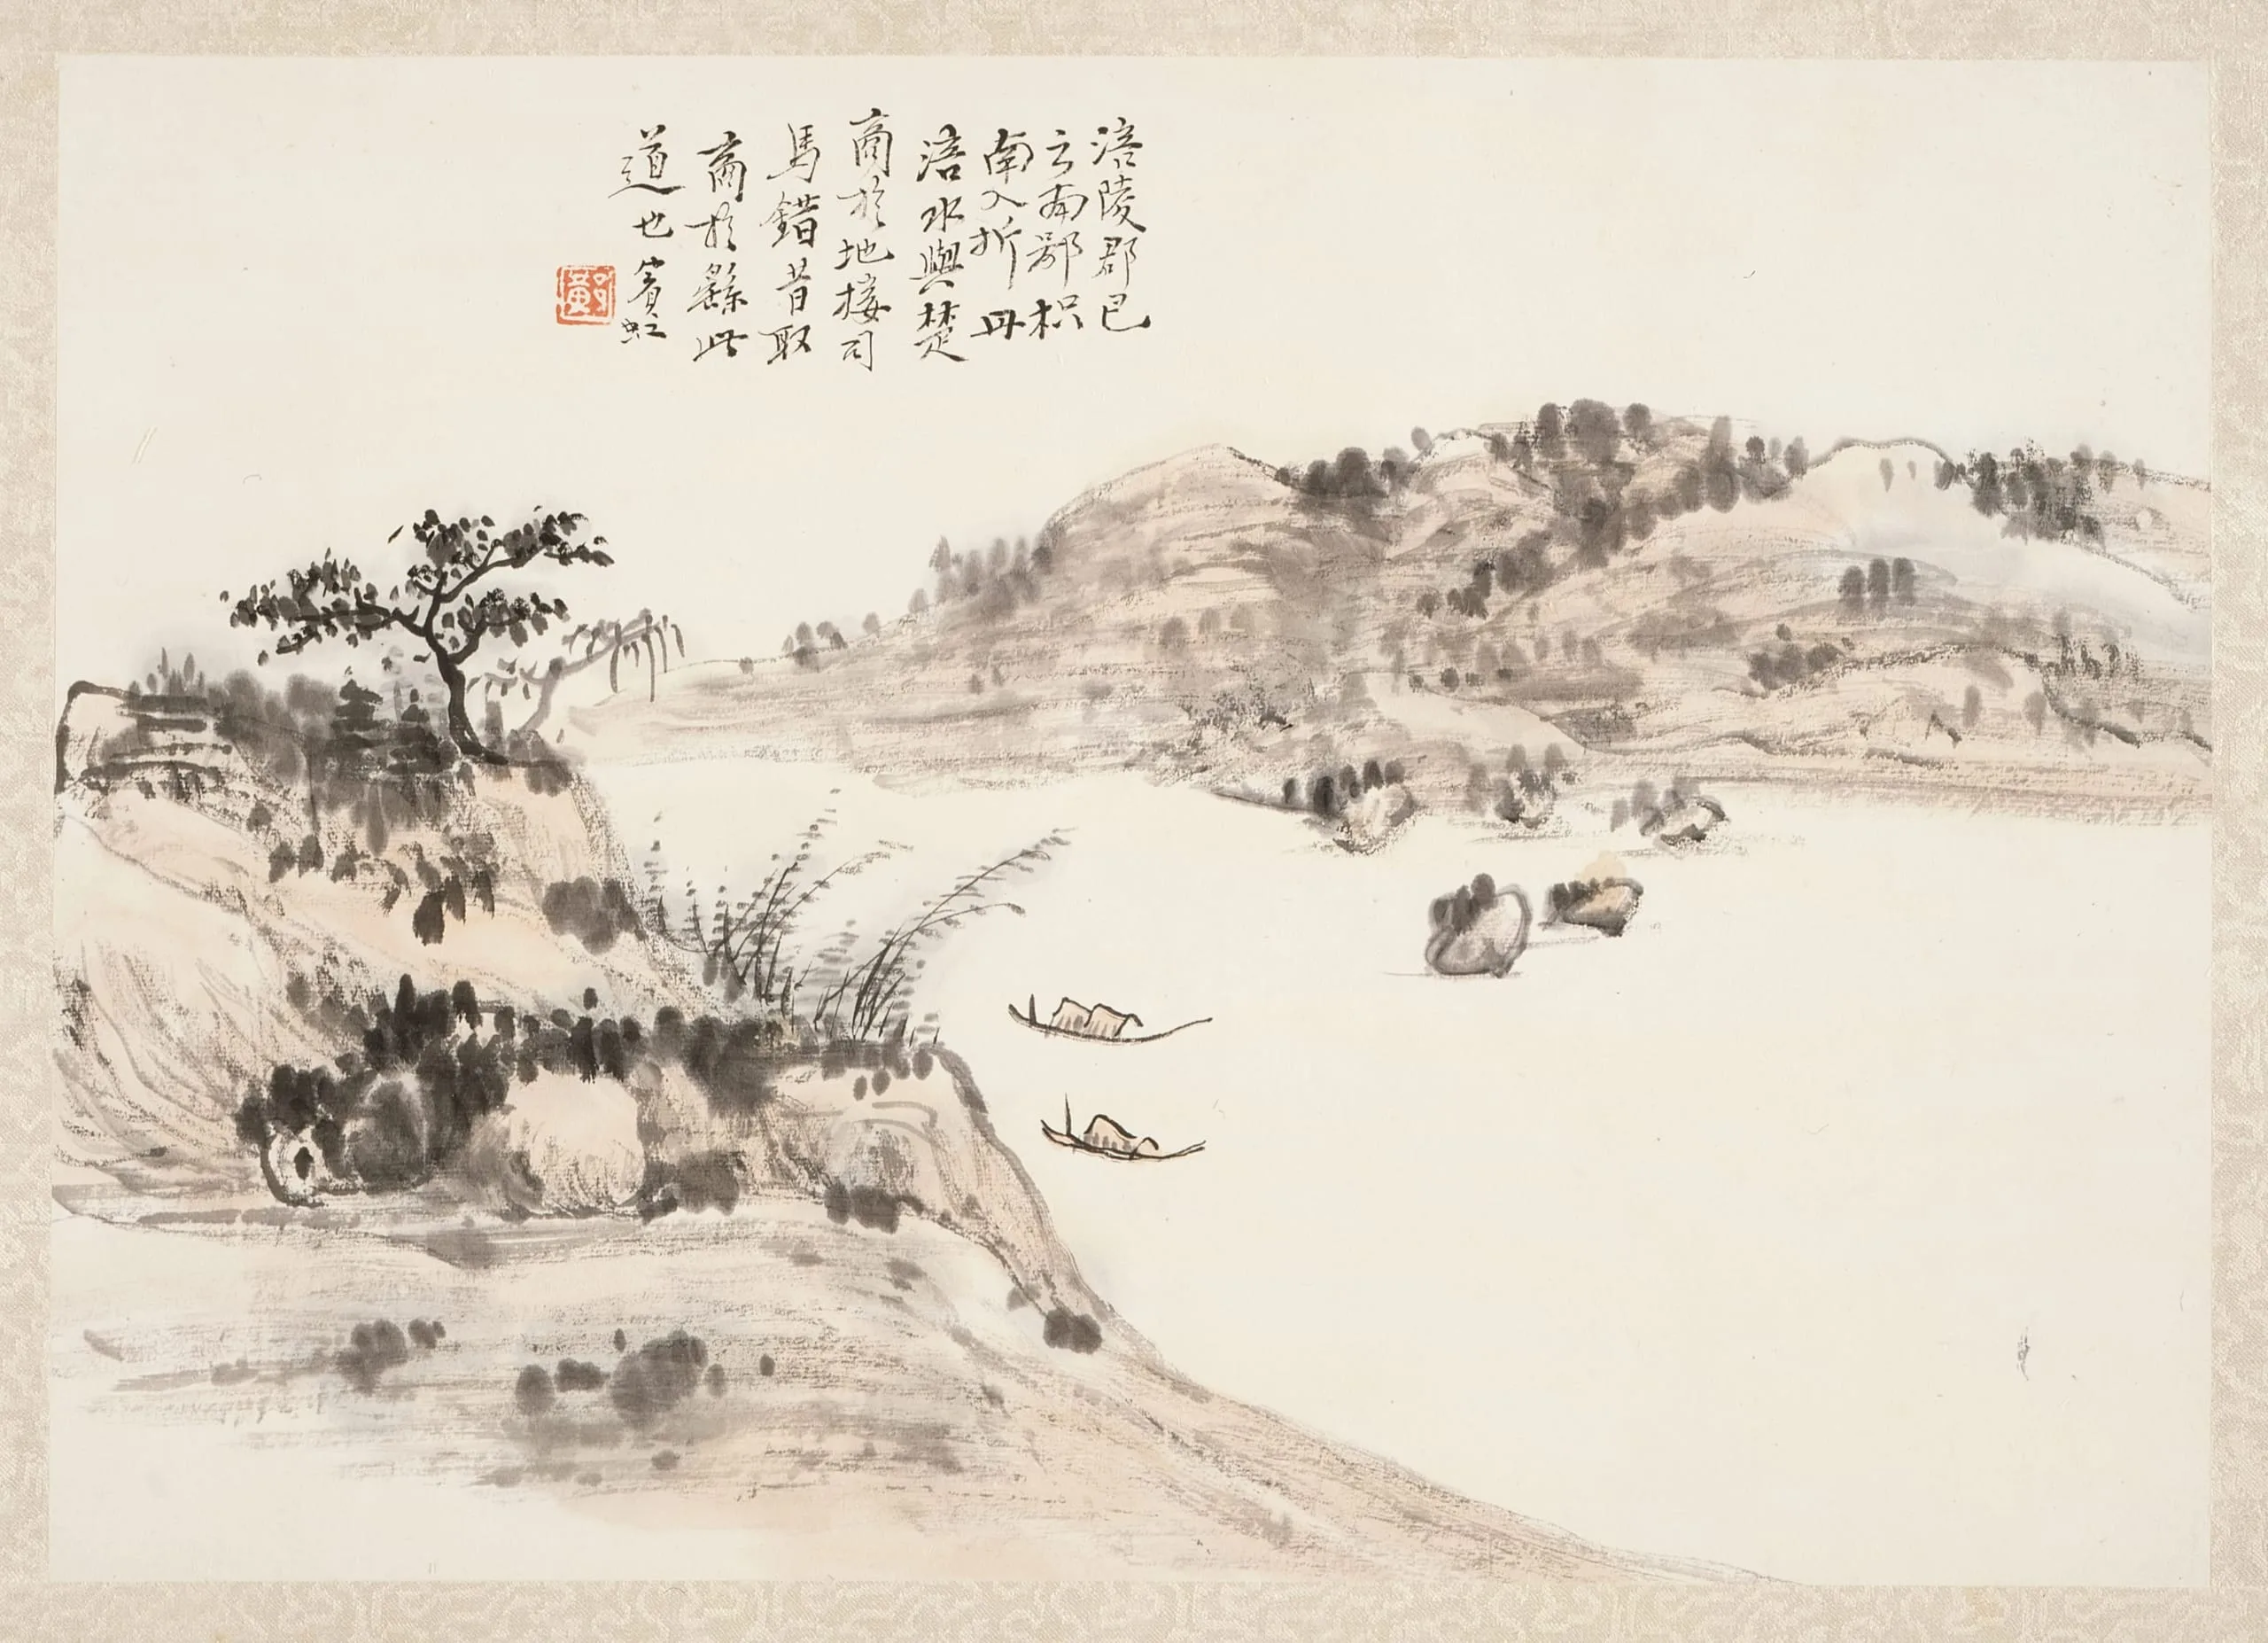 涪陵郡巴
之南鄙枳
南入泝舟
涪水與楚
商於地接司
馬錯昔取
商於繇此
道也賓虹